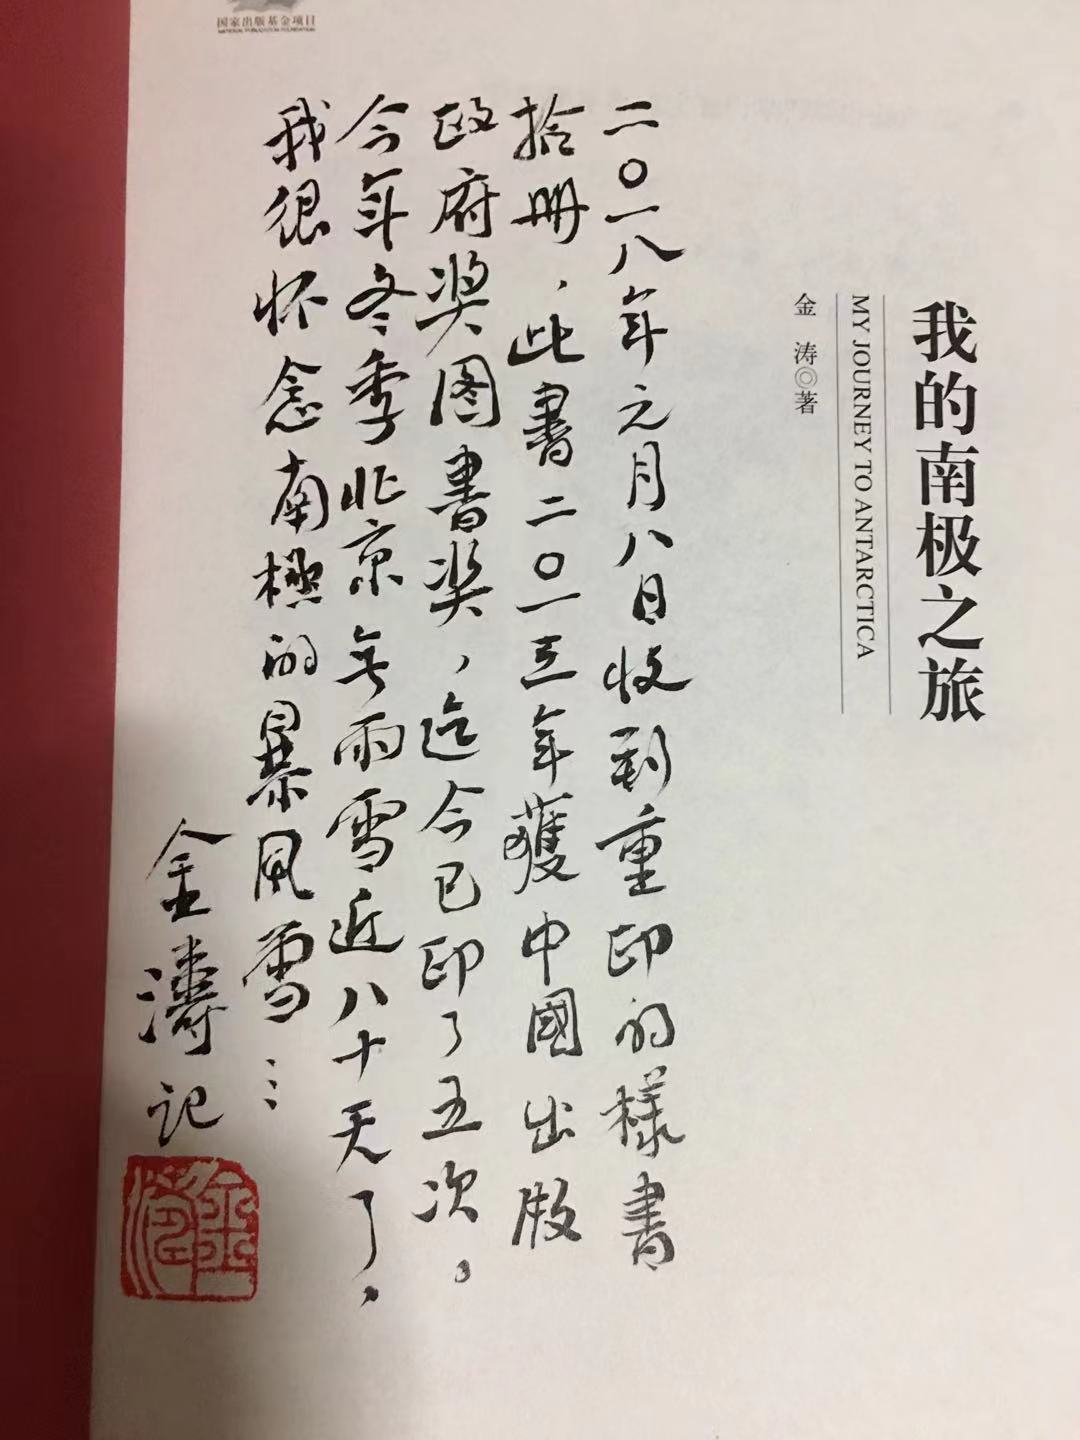 国家出版基金项目
NATIONAL PUBLICATION FOUNDATION
我的南极之旅
MY JOURNEY TO ANTARCTICA
金 涛◎著
二〇一八年元月八日收到重印的樣書
拾册，此書二〇一三年獲中國出版
政府奖图書奖，迄今已印了五次。
今年冬季北京無雨雪近八十天了，
我很怀念南極的暴風雪……
金濤记
金涛